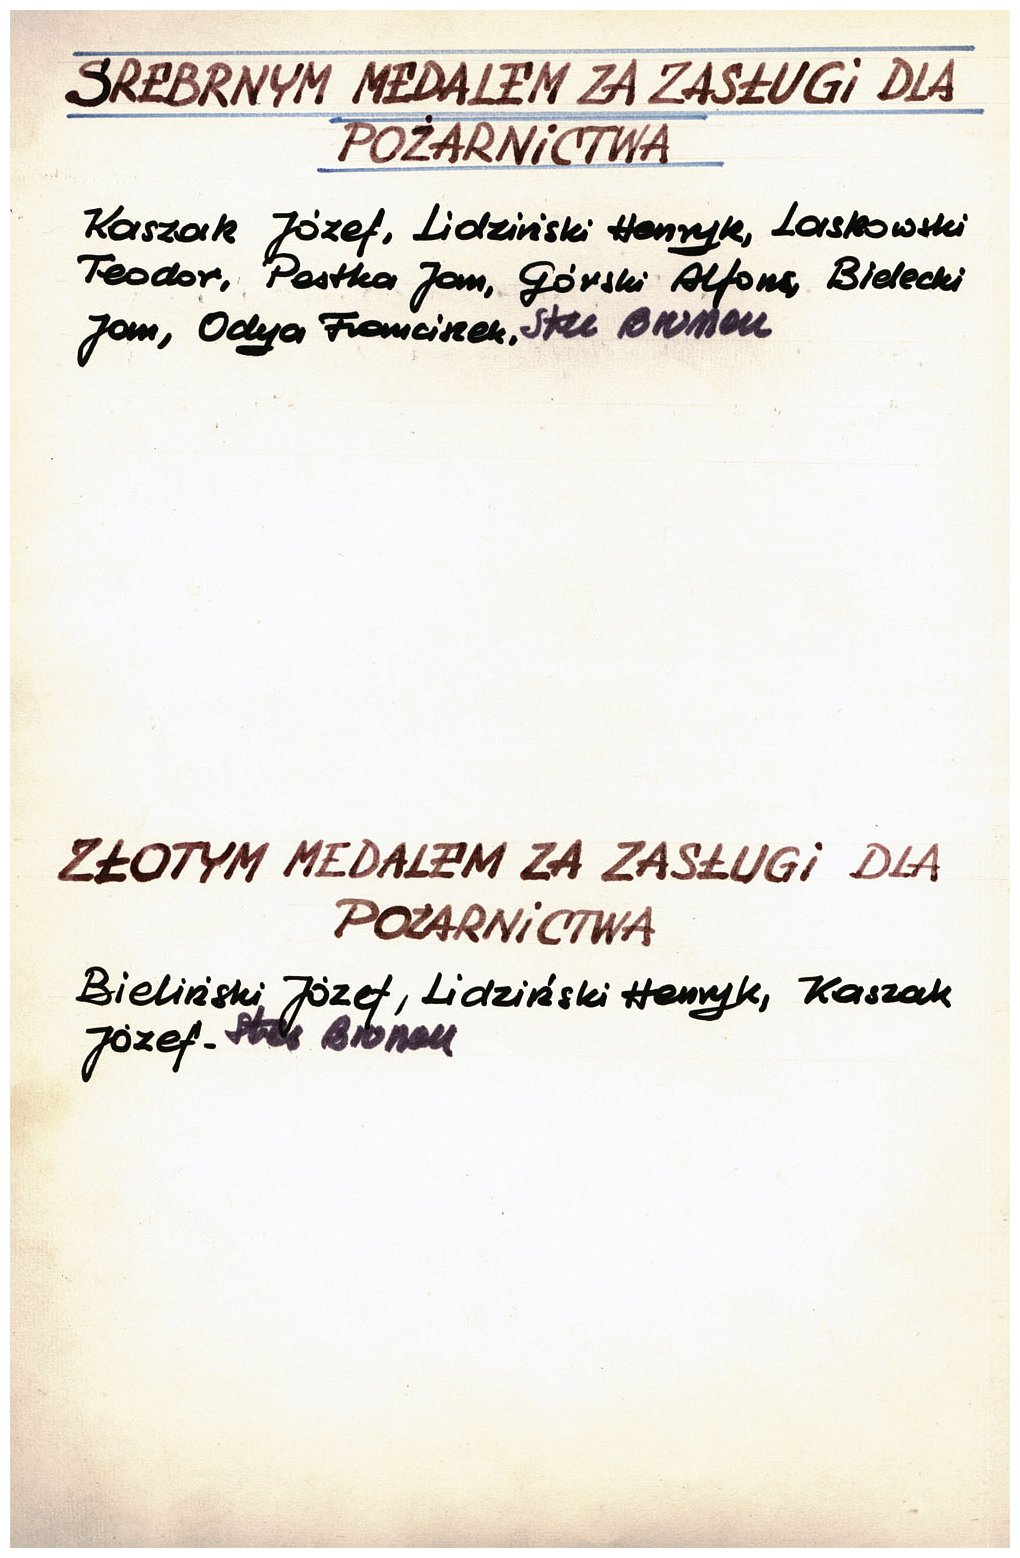 SREBRNYM MEDALEM ZA ZASŁUGi DLA
POŻARNiCTWA
Kaszak Józef, Lidziński Henryk, Laskowski
Teodor, Pestka Jan, Górski Alfons, Bielecki
Jan, Odya Franciszek,
ZŁOTYM MEDALEM ZA ZASŁUGi DLA
POŻARNiCTWA
Bieliński Józef, Lidziński Henryk, Kaszak
Józef-